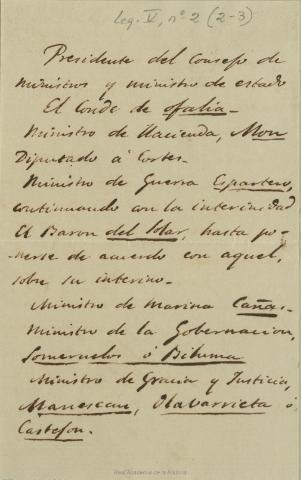 Leg. V, nº 2 (2-3)
Presidente del Consejo de
ministros y ministro de estado
El Conde de Ofalia-
Ministro de Hacienda, Mon
Diputado á Cortes-
Ministro de Guerra Espartero,
continuando con la interinidad
El Baron del Solar, hasta po-
nerse de acuerdo con aquel,
sobre su interino-
Ministro de Marina Cañas-
Ministro de la Gobernacion,
Someruelos ó Biluma
Ministro de Gracia y Justicia,
Manescau, Olabarrieta ó
Castejon.
Real Academia de la Historia